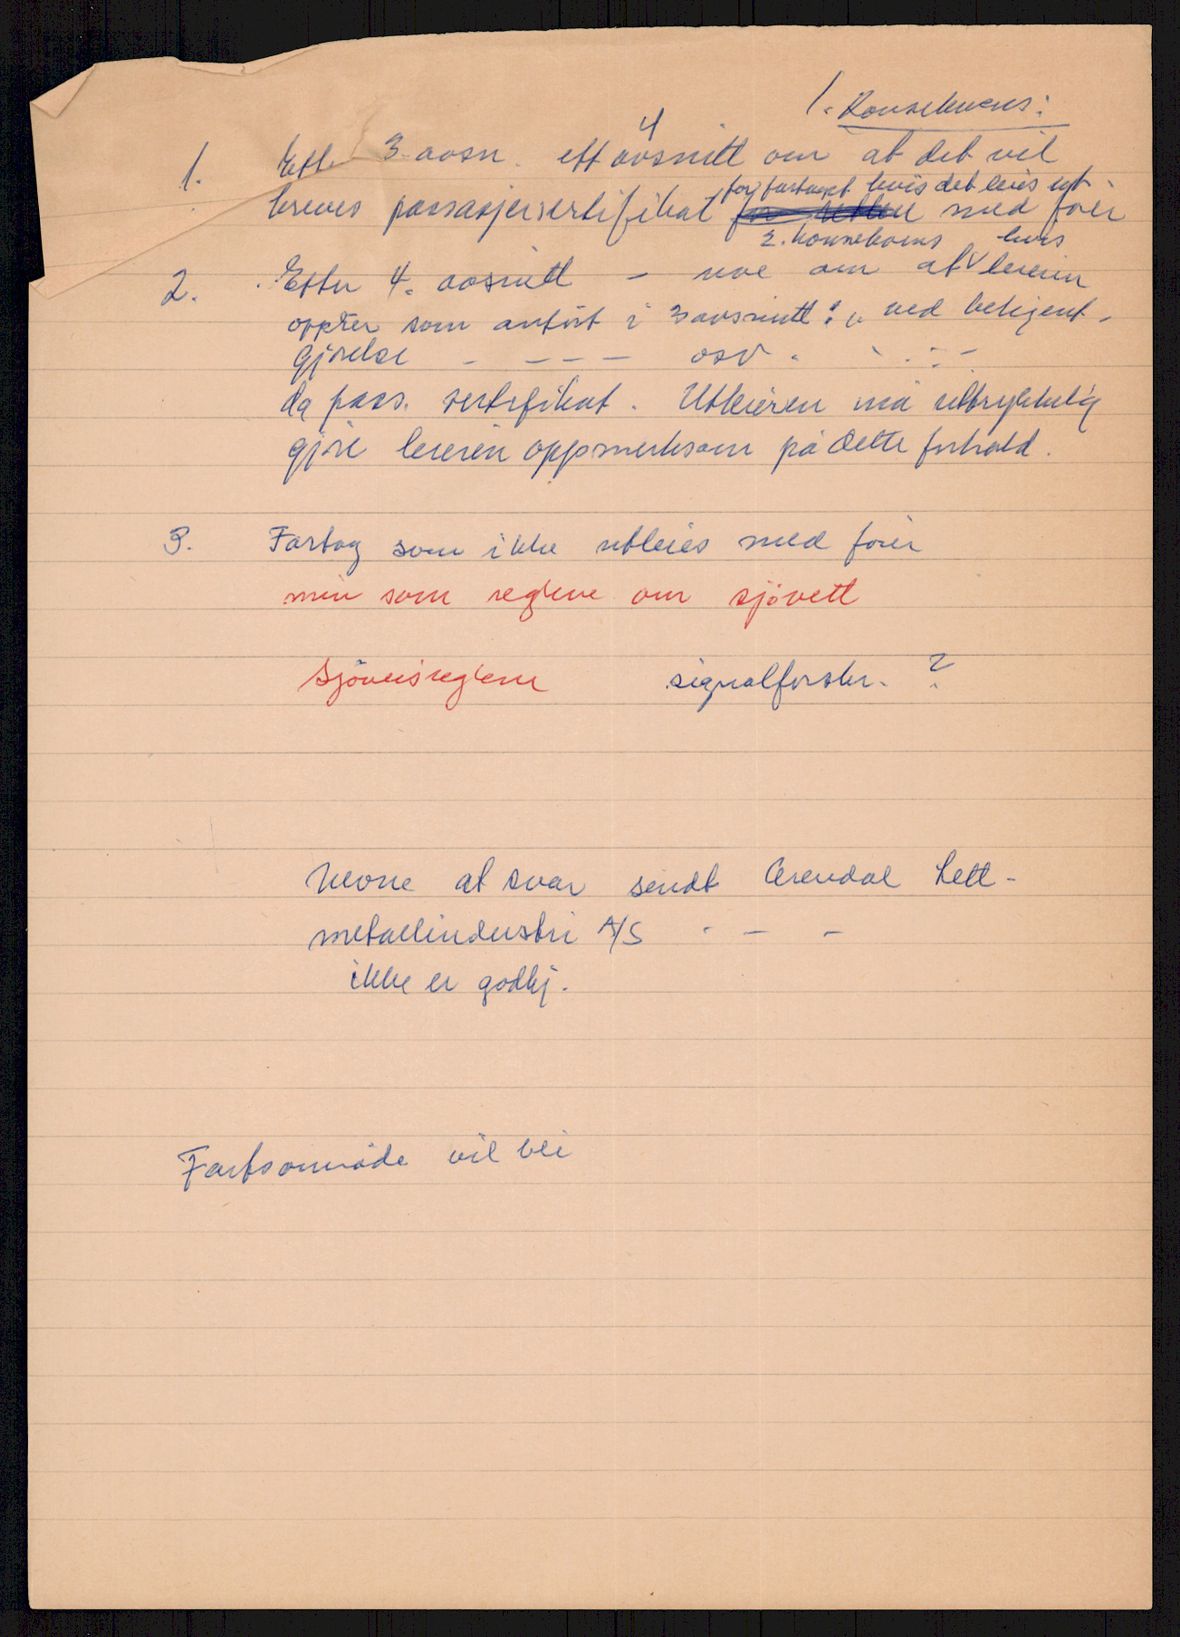 1. Konsekvens:
4
1. Eft. 3 avsn. ett avsnitt om at det vil
for fartøyet hvis det leies ut
kreves passasjersertifikat med fører
2. konsekvens hvis
2. Etter 4. avsnitt – noe om at leieren
opptrer som anført i 3 avsnitt: ved bekjent-
gjørelse - - - - osv.
da pass. sertifikat. Utleieren må uttrykkelig
gjøre leieren oppmerksom på dette forhold.
3. Fartøy som ikke utleies med fører
min som reglene om sjøvett
Sjøveisreglene signalforskr. ?
Nevne at svar sendt Arendal Lett-
metallindustri A/S - - -
ikke er godkj.
Fartsområde vil bli